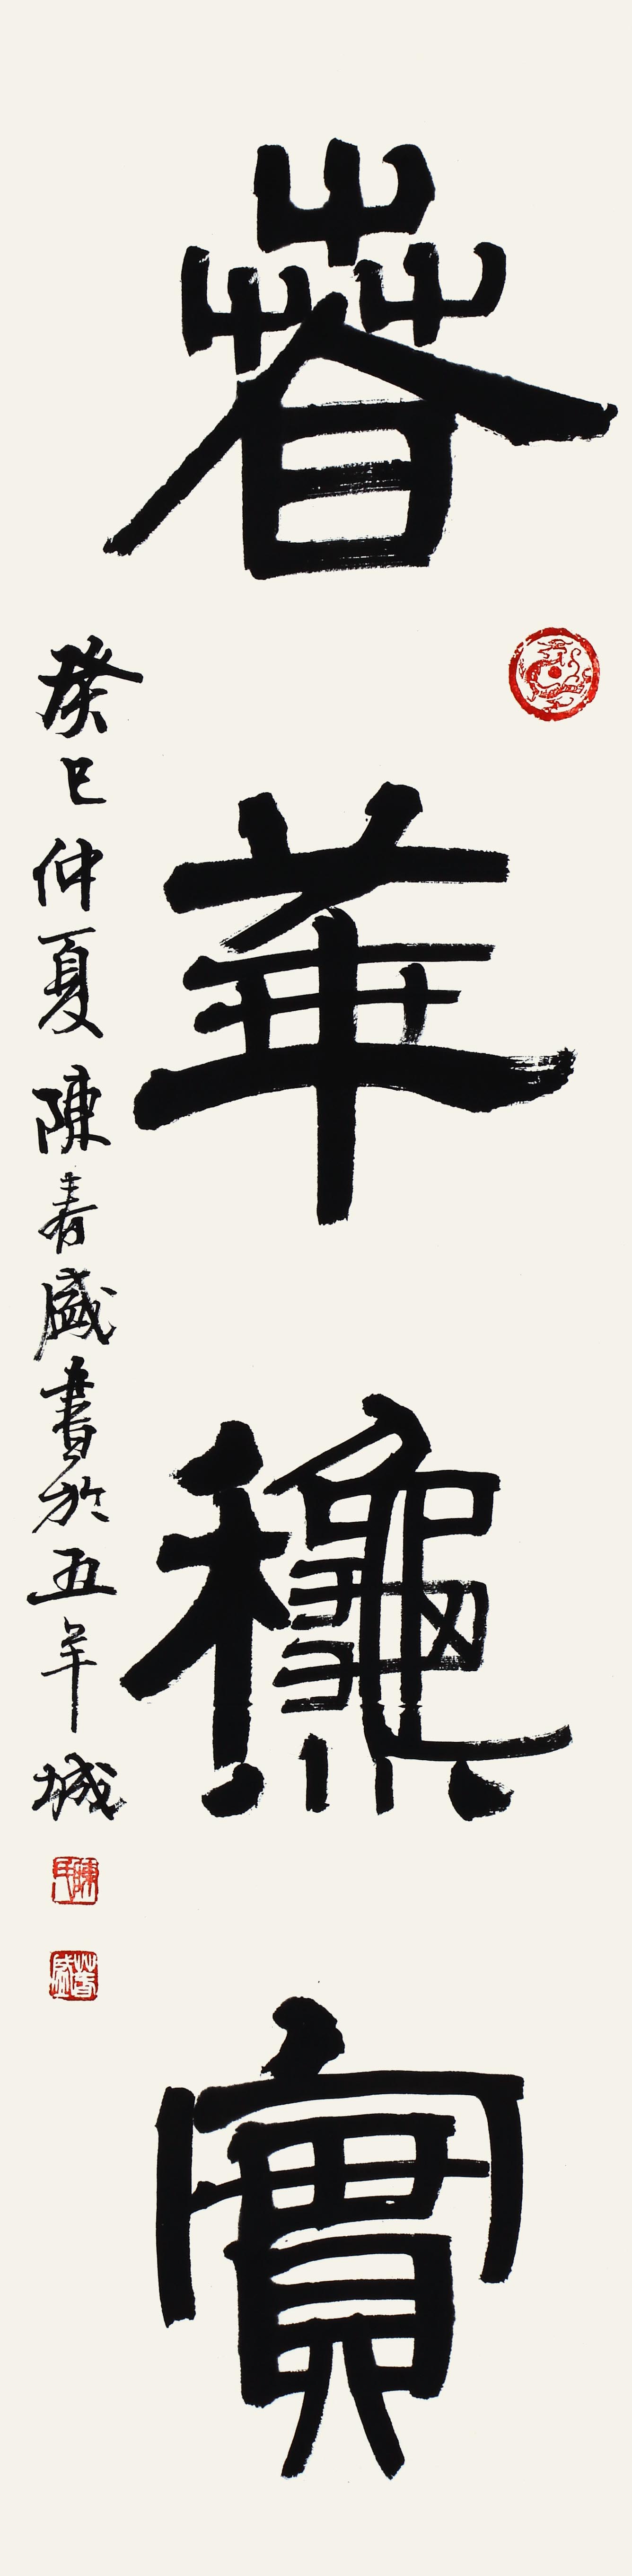 春華龝實
癸巳仲夏陳春盛書於五羊城
陳氏
春盛